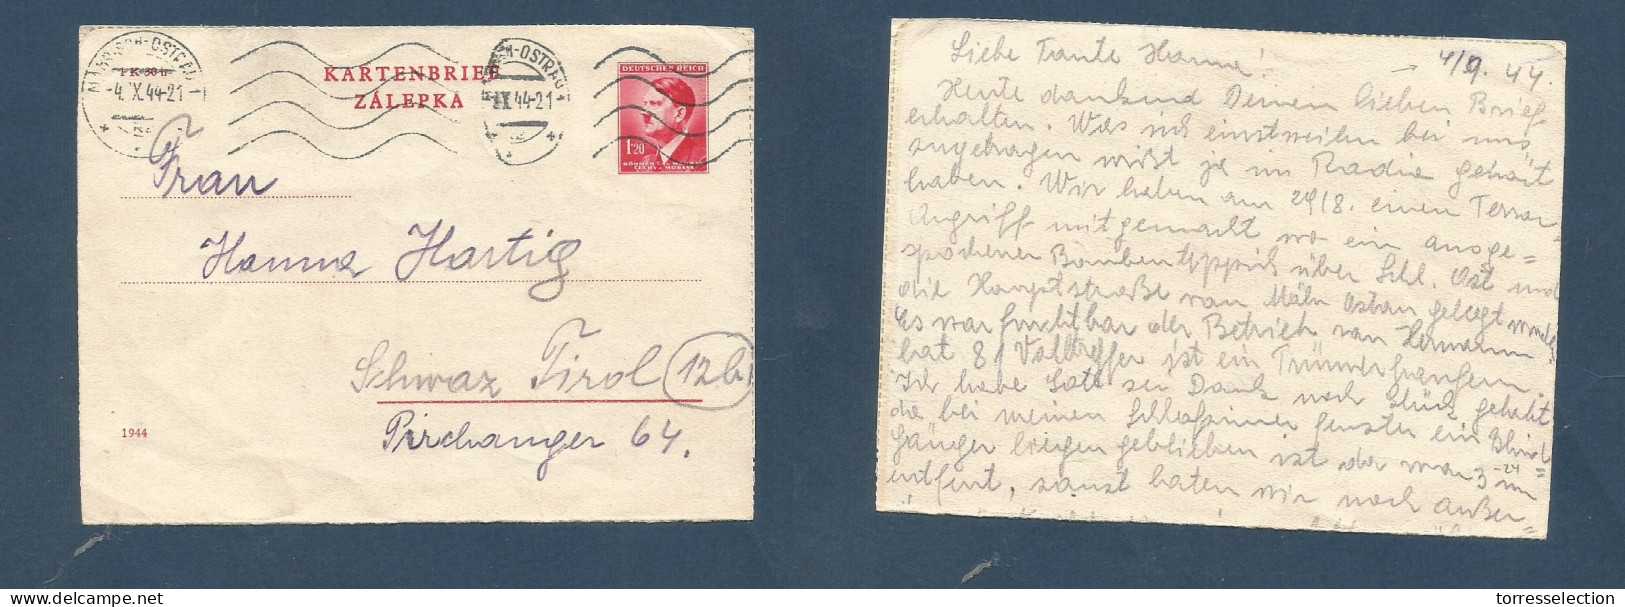 MÄHRISCH-OSTRAU 1
-4.IX.44-21
1 K 50 h
KARTENBRIEF
ZÁLEPKA
DEUTSCHES REICH
1·20
BÖHMEN U. MÄHREN
ČECHY A MORAVA
Frau
Hanna Hartig
Schwaz Tirol (12b)
1944
Pirchanger 64.
Liebe Tante Hanna!
4/9. 44.
Heute dankend Deinen lieben Brief
erhalten. Was sich einstweilen bei uns
zugetragen wißt ja im Radio gehört
haben. Wir haben am 29/8. einen Terror-
Angriff mitgemacht wo ein ausge=
sprochener Bombenteppich über Schl. Ost und
die Hauptstraße von Mähr Ostrau gelegt wurde
Es war furchtbar der Betrieb von Hermann
hat 81 Volltreffer ist ein Trümmerhaufen.
Ich habe Gott sei Dank noch Glück gehabt
da bei meinen Schlafzimmer fenster ein Blind=
gänger liegen geblieben ist der war 3 m
entfernt, sonst haten wir noch außer=
torresselection